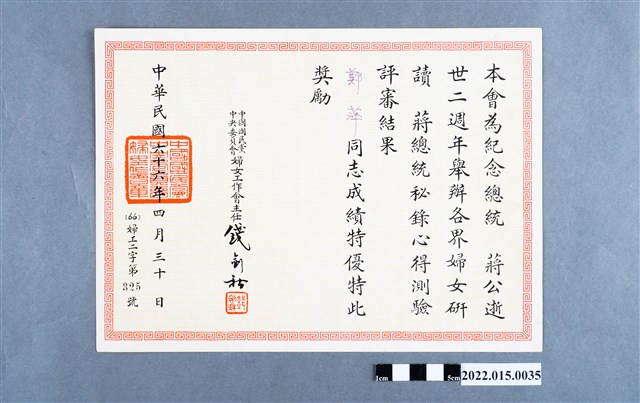 本會為紀念總統　蔣公逝
世二週年舉辦各界婦女研
讀　蔣總統秘錄心得測驗
評審結果
鄭華同志成績特優特此
獎勵
中國國民黨
中央委員會
婦女工作會主任
錢劍秋
中華民國六十六年四月三十日
(66)婦工二字第325號
1cm
5cm
2022.015.0035